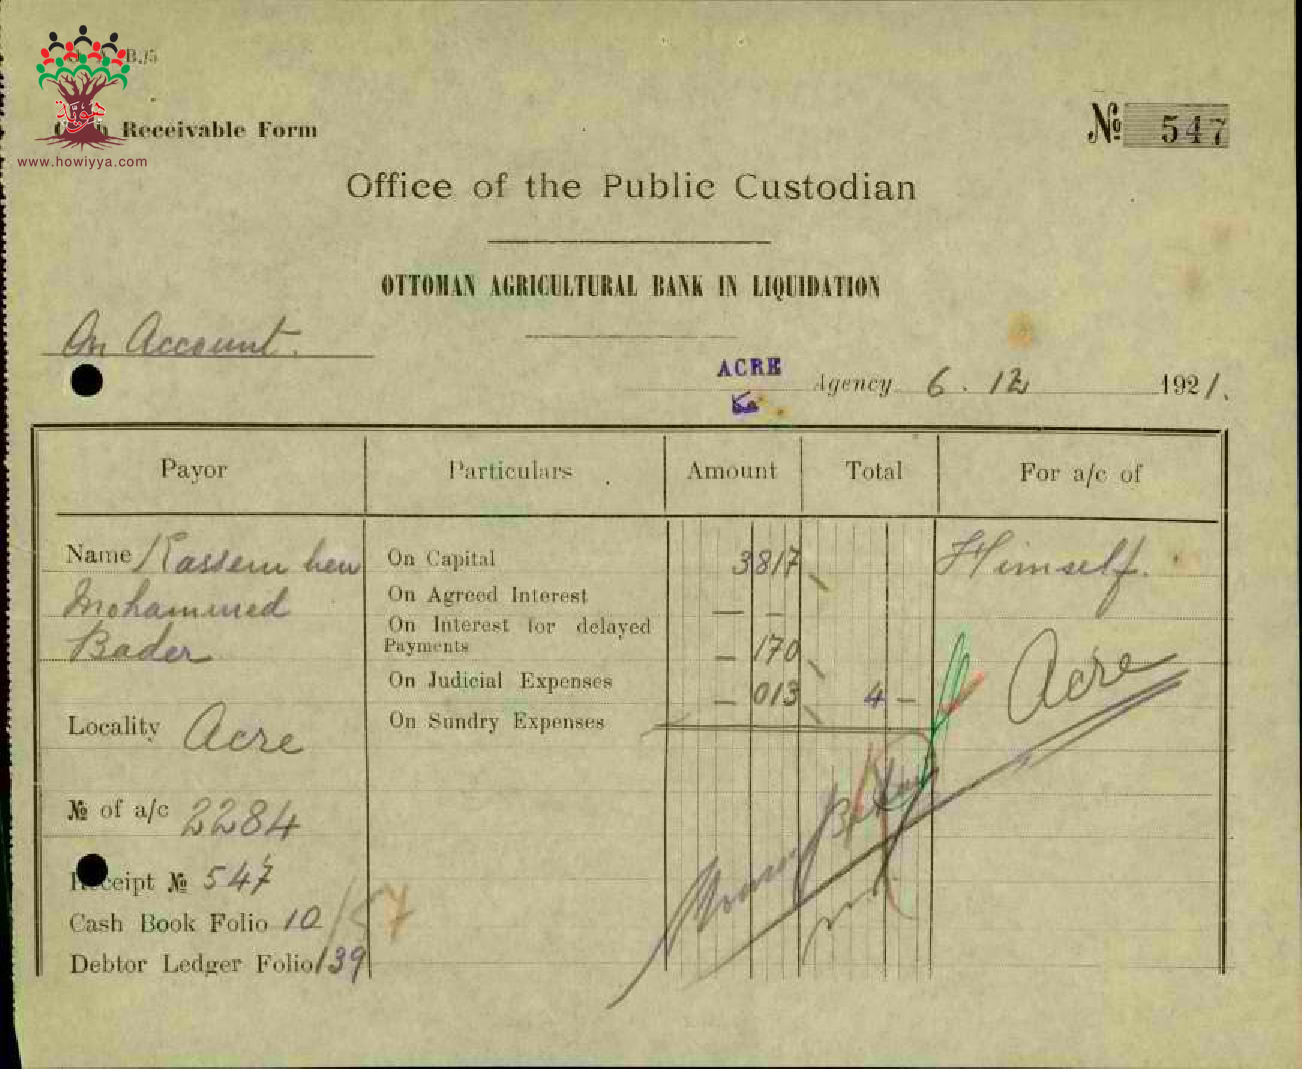 B.15
هوية
www.howiyya.com
Cash Receivable Form
№ 547
Office of the Public Custodian
OTTOMAN AGRICULTURAL BANK IN LIQUIDATION
On Account.
ACRE Agency 6. 12 1921.
Payor Particulars Amount Total For a/c of
Name Kassem ben On Capital 3817 Himself.
Mohammed On Agreed Interest — —
Bader On Interest for delayed
Payments — 170 Acre
On Judicial Expenses — 013 4 —
Locality Acre On Sundry Expenses
№ of a/c 2284
Receipt № 547
Cash Book Folio 10 /57
Debtor Ledger Folio 139